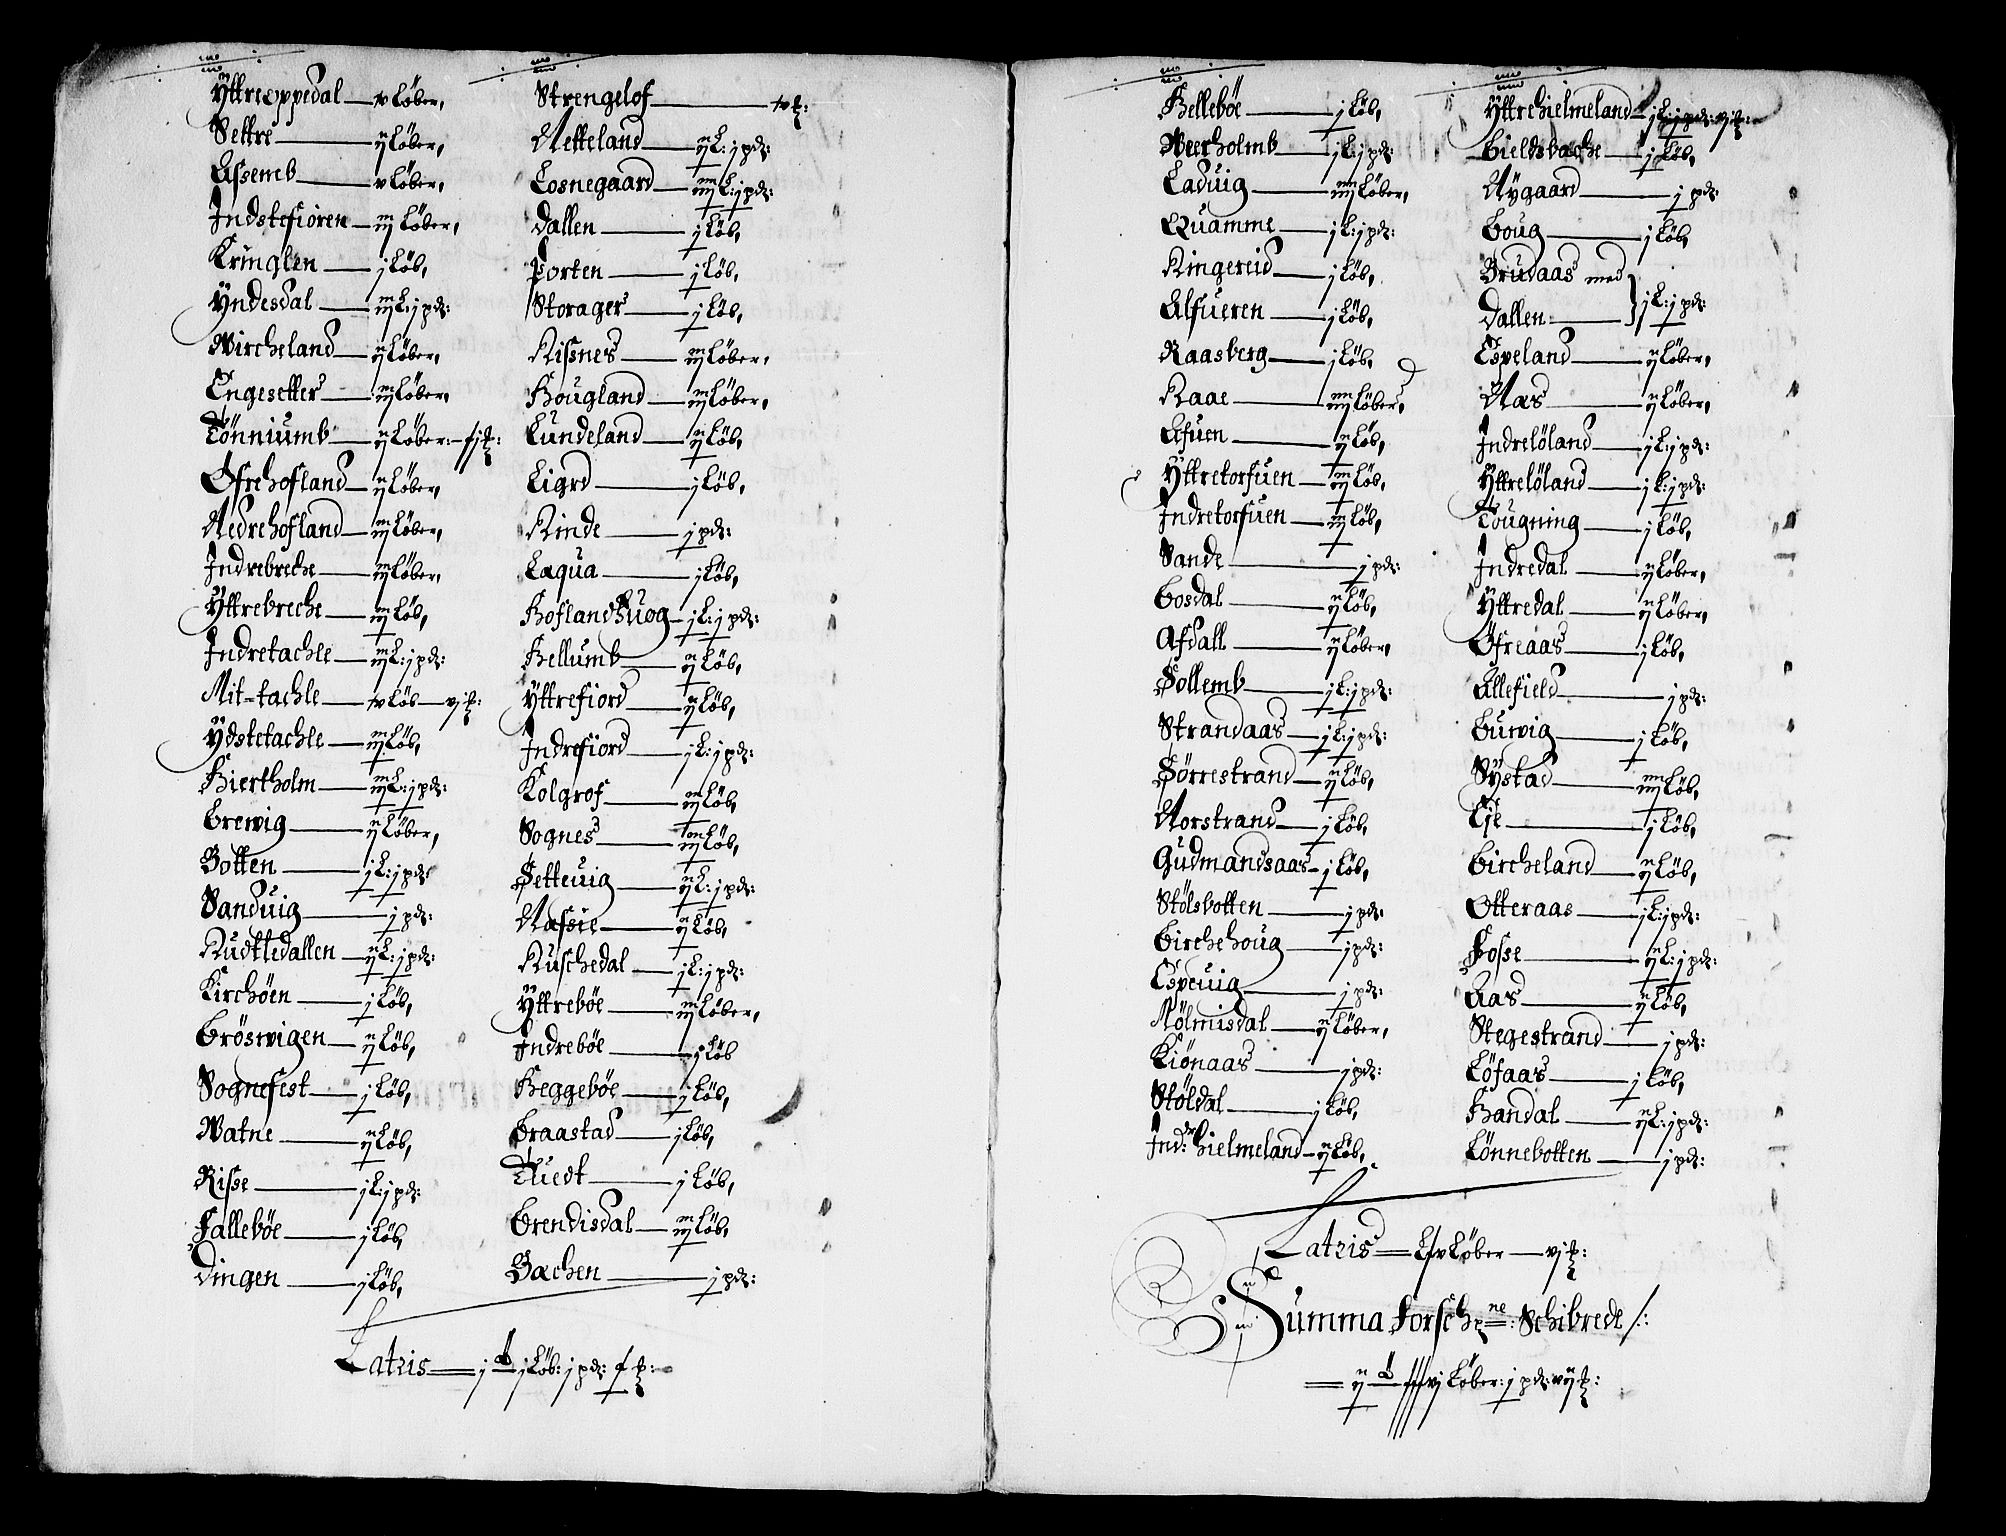 Yttreoppedal — iv Løber,
Settre — ij Løber,
Assemb — v Løber,
Indstefiören — iij Løber,
Kringlen — j Løb,
Yndesdal — iij L: j pd:
Wircheland — ij Løber,
Engesetter — iij Løber,
Tönniumb — ij Løber:
Öfrehofland — ij Løber,
Nedrehofland — iij Løber,
Indrebreche — iij Løber,
Yttrebreche — iij Løb,
Indretachle — iij L: j pd:
Mit-tachle — iv Løb — vj
Ydstetachle — iij Løb,
Hiertholm — iij L: j pd:
Brewig — ij Løber,
Botten — j L: j pd:
Sanduig — j pd:
Rudtledallen — ij L: j pd:
Kirchöen — j Løb,
Bröswigen — ij Løb,
Sognefest — j Løb,
Watne — ij Løb,
Risse — j L: j pd:
Falleböe — j Løb,
Dingen — j Løb,
Strengelof — iv
Netteland — ij L: j pd:
Losnegaard — iiij L: j pd:
Dallen — j Løb,
Porten — j Løb,
Storager — j Løb,
Rissnes — iij Løber,
Hougland — iij Løber,
Lundeland — ij Løb,
Ligrd — j Løb,
Rinde — j pd:
Laqua — j Løb,
Hoflandsuog — j L: j pd:
Hellumb — ij Løb,
Yttrefiord — ij Løb,
Indrefiord — j L: j pd:
Kolgrof — iij Løb,
Sognes — iij Løb,
Setteuig — ij L: j pd:
Nassie — ij Løb,
Ruschedal — j L: j pd:
Yttreböe — iij Løber,
Indreböe — j Løb
Heggeböe — j Løb,
Braastad — j Løb,
Tuedt — j Løb,
Brendisdal — iij Løb,
Bachen — j pd:
Latris — j Løb: j pd:
Helleböe — j Løb,
Weerholmb — j L: j pd:
Laduig — iiij Løber,
Quamme — j L: j pd:
Ringereid — j Løb,
Alfueren — j Løb,
Raasberg — j Løb,
Raae — iiij Løber,
Afuen — ij Løb,
Yttretorfuen — iij Løb,
Indretorfuen — iij Løb,
Sande — j pd:
Bosdal — ij Løb,
Afdall — ij Løber,
Sollemb — j L: j pd:
Strandaas — j L: j pd:
Sørrestrand — ij Løb,
Norstrand — j Løb,
Gudmandsaas — j Løb,
Stölsbotten — j pd:
Birchehoug — j pd:
Espeuig — j pd:
Mölmisdal — ij Løber,
Kiönaas — j pd:
Stöldal — j Løb,
Ind: hielmeland — ij Løb,
Yttrehielmeland — j L: j pd: vj
Bieldsbache — j Løb,
Nygaard — j pd:
Boug — j Løb,
Brudaas med
Dallen — j L: j pd:
Espeland — ij Løber,
Næs — ij Løber,
Indrelöland — j L: j pd:
Yttrelöland — j L: j pd:
Tougning — j Løb,
Indredal — ij Løber,
Yttredal — ij Løber,
Öfreaas — j Løb,
Allefield — j pd:
Buwig — j Løb,
Systad — iiij Løb,
Eje — j Løb,
Bircheland — ij Løb,
Otteraas — j L: j pd:
Fosse — ij L: j pd:
Aas — ij Løb,
Stegestrand — j pd:
Löfaas — j Løb,
Handal — ij L: j pd:
Lönnebotten — j pd:
Latris — Løber — vj
Summa Forschne: Schibrede /:
vj Løber: j pd: vij